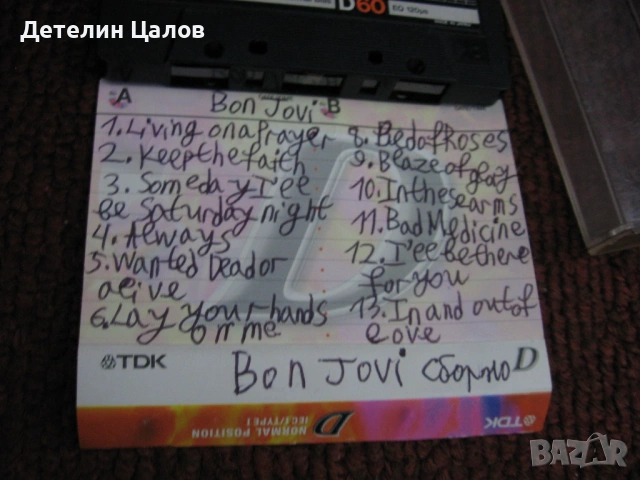 Детелин Цалов
D60
EQ 120μs
A
Bon Jovi
B
1. Living on a Prayer
2. Keep the faith
3. Someday I'ee
be Saturday night
4. Always
5. Wanted Dead or
aeive
6. Lay your hands
on me
8. Bed of Roses
9. Blaze of glay
10. In these arms
11. Bad Medicine
12. I'ee be there
for you
13. In and out of
eove
TDK
Bon Jovi сборно D
D NORMAL POSITION
IEC I/TYPE I
TDK
BAZAR